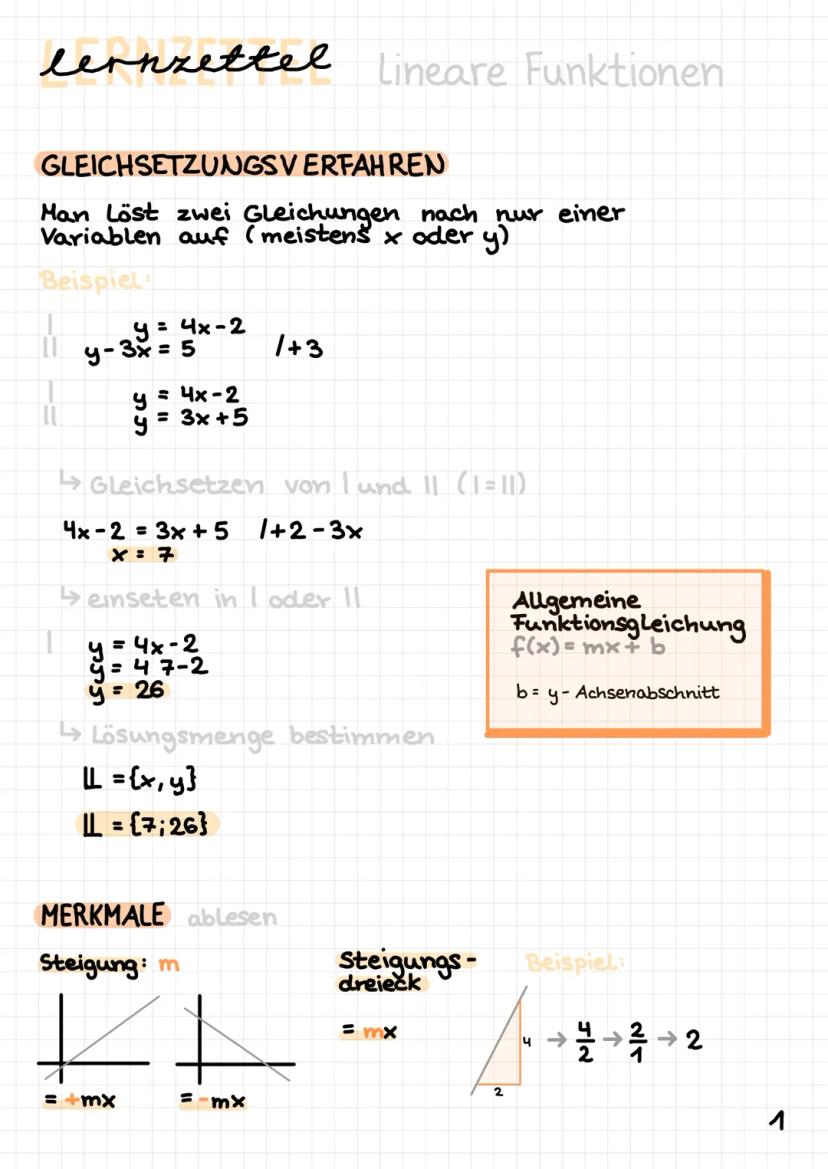 LERNZETTEL
lernzettel Lineare Funktionen
GLEICHSETZUNGSVERFAHREN
Man Löst zwei Gleichungen nach nur einer
Variablen auf (meistens x oder y)
Beispiel:
I y = 4x-2
II y-3x = 5 /+3
I y = 4x-2
II y = 3x+5
↳ Gleichsetzen von I und II (I=II)
4x-2 = 3x+5 /+2-3x
x = 7
↳ einseten in I oder II
I y = 4x-2
y = 4 7-2
y = 26
↳ Lösungsmenge bestimmen
𝕃 = {x, y}
𝕃 = {7;26}
Allgemeine
Funktionsgleichung
f(x) = mx + b
b = y-Achsenabschnitt
MERKMALE ablesen
Steigung: m
= +mx
= -mx
Steigungs-
dreieck
= mx
Beispiel:
4 → 4/2 → 2/1 → 2
2
1